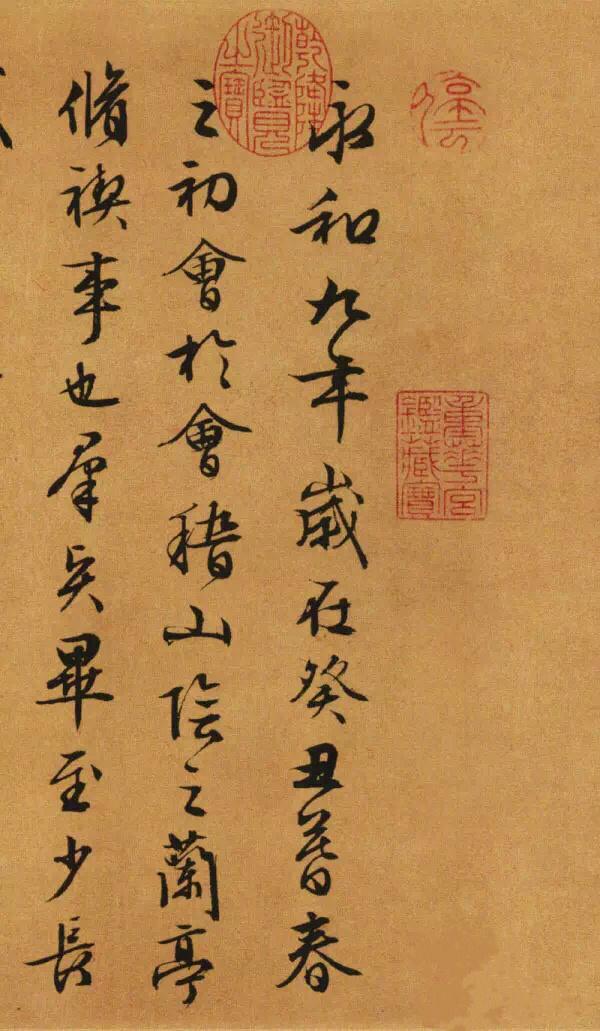 停雲
重華宮鑑藏寶
乾隆御覽之寶
永和九年歲在癸丑暮春
之初會於會稽山陰之蘭亭
脩禊事也羣賢畢至少長